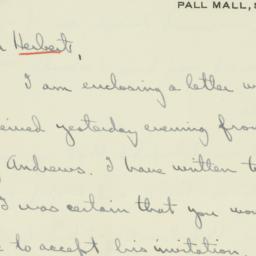 PALL MALL, S
Herbert,
I am enclosing a letter w
eived yesterday evening from
Andrews. I have written t
I was certain that you wou
e to accept his invitation.